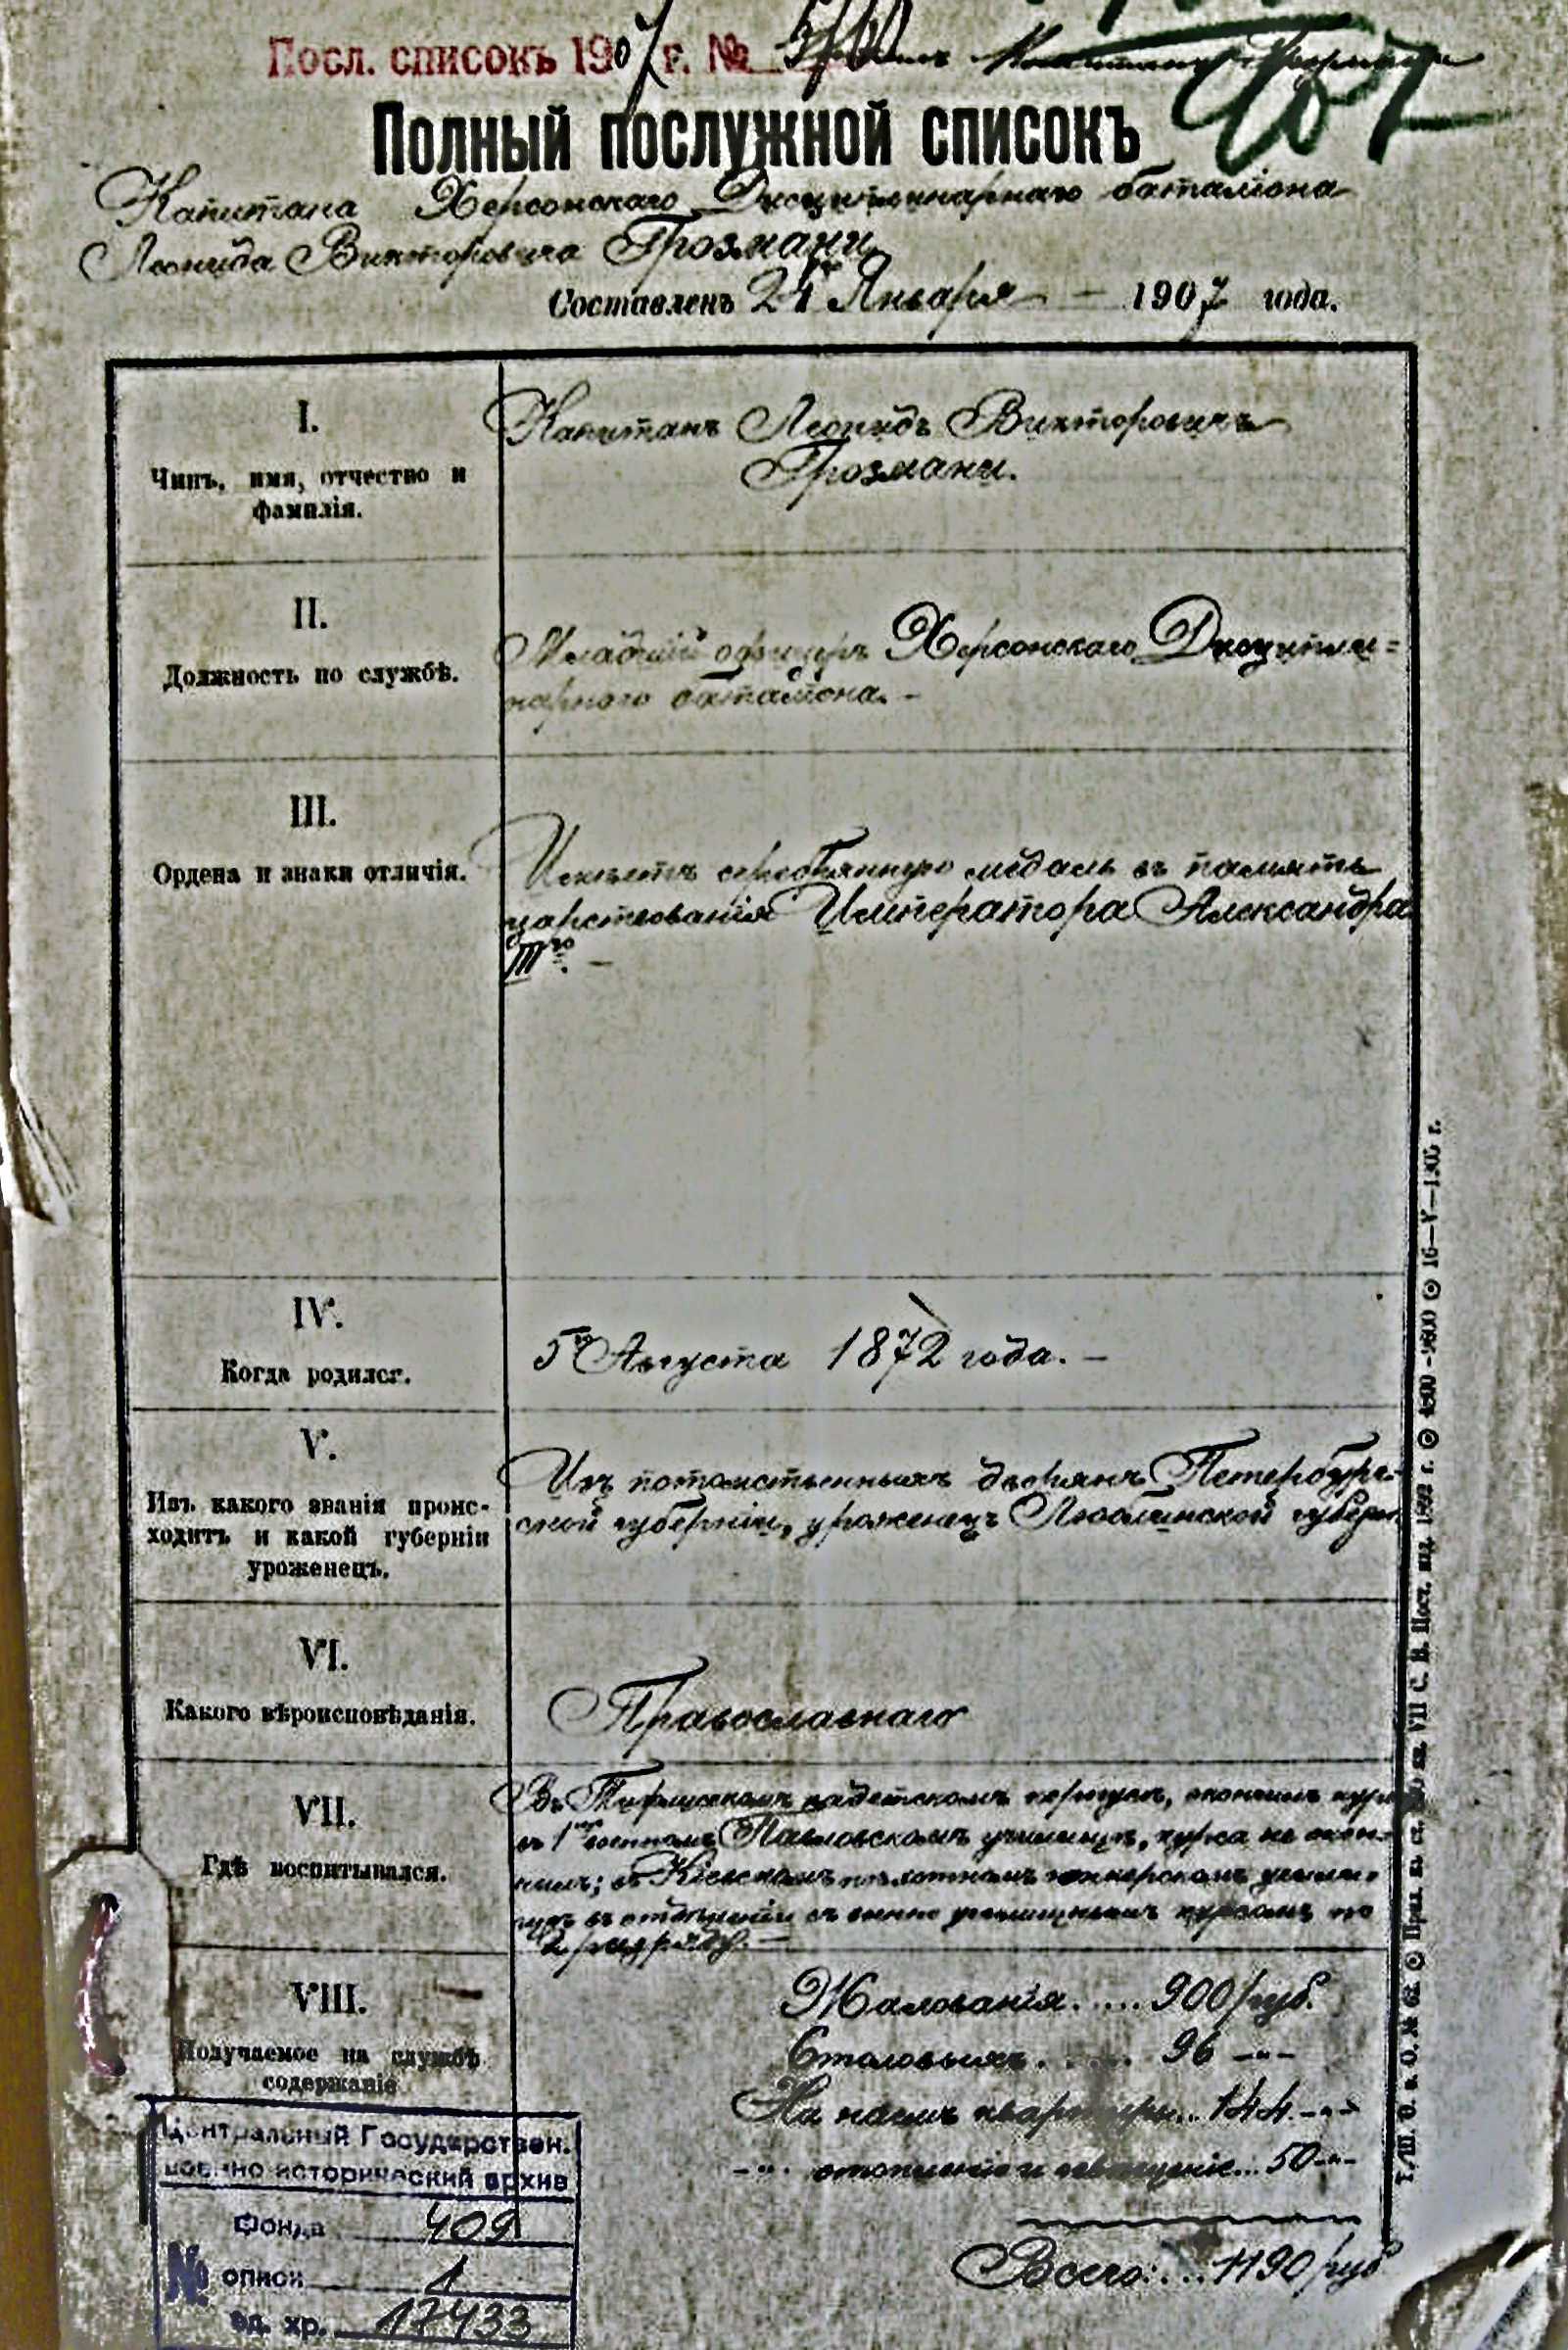 Посл. списокъ 1907 г. №
Полный послужной списокъ
Капитана Херсонскаго Дисциплинарнаго баталіона
Леонида Викторовича Грозмани
Составленъ 24го Января – 1907 года.
I.
Чинъ, имя, отчество и
фамилія.
Капитанъ Леонидъ Викторовичъ
Грозмани.
II.
Должность по службѣ.
Младшій офицеръ Херсонскаго Дисципли=
нарнаго баталіона. –
III.
Ордена и знаки отличія.
Имѣетъ серебрянную медаль въ память
царствованія Императора Александра
IIIго. –
IV.
Когда родился.
5го Августа 1872 года. –
V.
Изъ какого званія проис-
ходитъ и какой губерніи
уроженецъ.
Изъ потомственныхъ дворянъ Петербург-
ской губерніи, уроженецъ Люблинской губерн.
VI.
Какого вѣроисповѣданія.
Православнаго
VII.
Гдѣ воспитывался.
Въ Тифлисскомъ кадетскомъ корпусѣ, окончилъ курсъ
въ 1мъ военномъ Павловскомъ училищѣ, курса не окон-
чилъ; въ Кіевскомъ пѣхотномъ юнкерскомъ учили-
щѣ въ отдѣленіи съ военно училищнымъ курсомъ по
2 разряду. –
VIII.
Получаемое на службѣ
содержаніе
Жалованія..... 900 руб.
Столовыхъ..... 96 –"–
На наемъ квартиры... 144 –"–
–"– отопленіе и освѣщеніе... 50 –"–
Всего:... 1190 руб
Центральный Государствен.
военно исторический архив
Фонда 409
№ описи 1
ед. хр. 17433